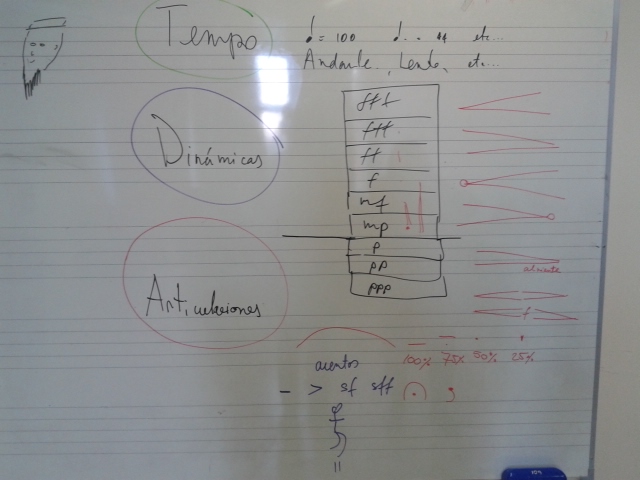 Tempo
= 100 etc...
Andante, Lento, etc...
Dinámicas
fff
ff
f
mf
mp
p
pp
ppp
al niente
f
Articulaciones
100% 75% 50% 25%
acentos
- > sf sff